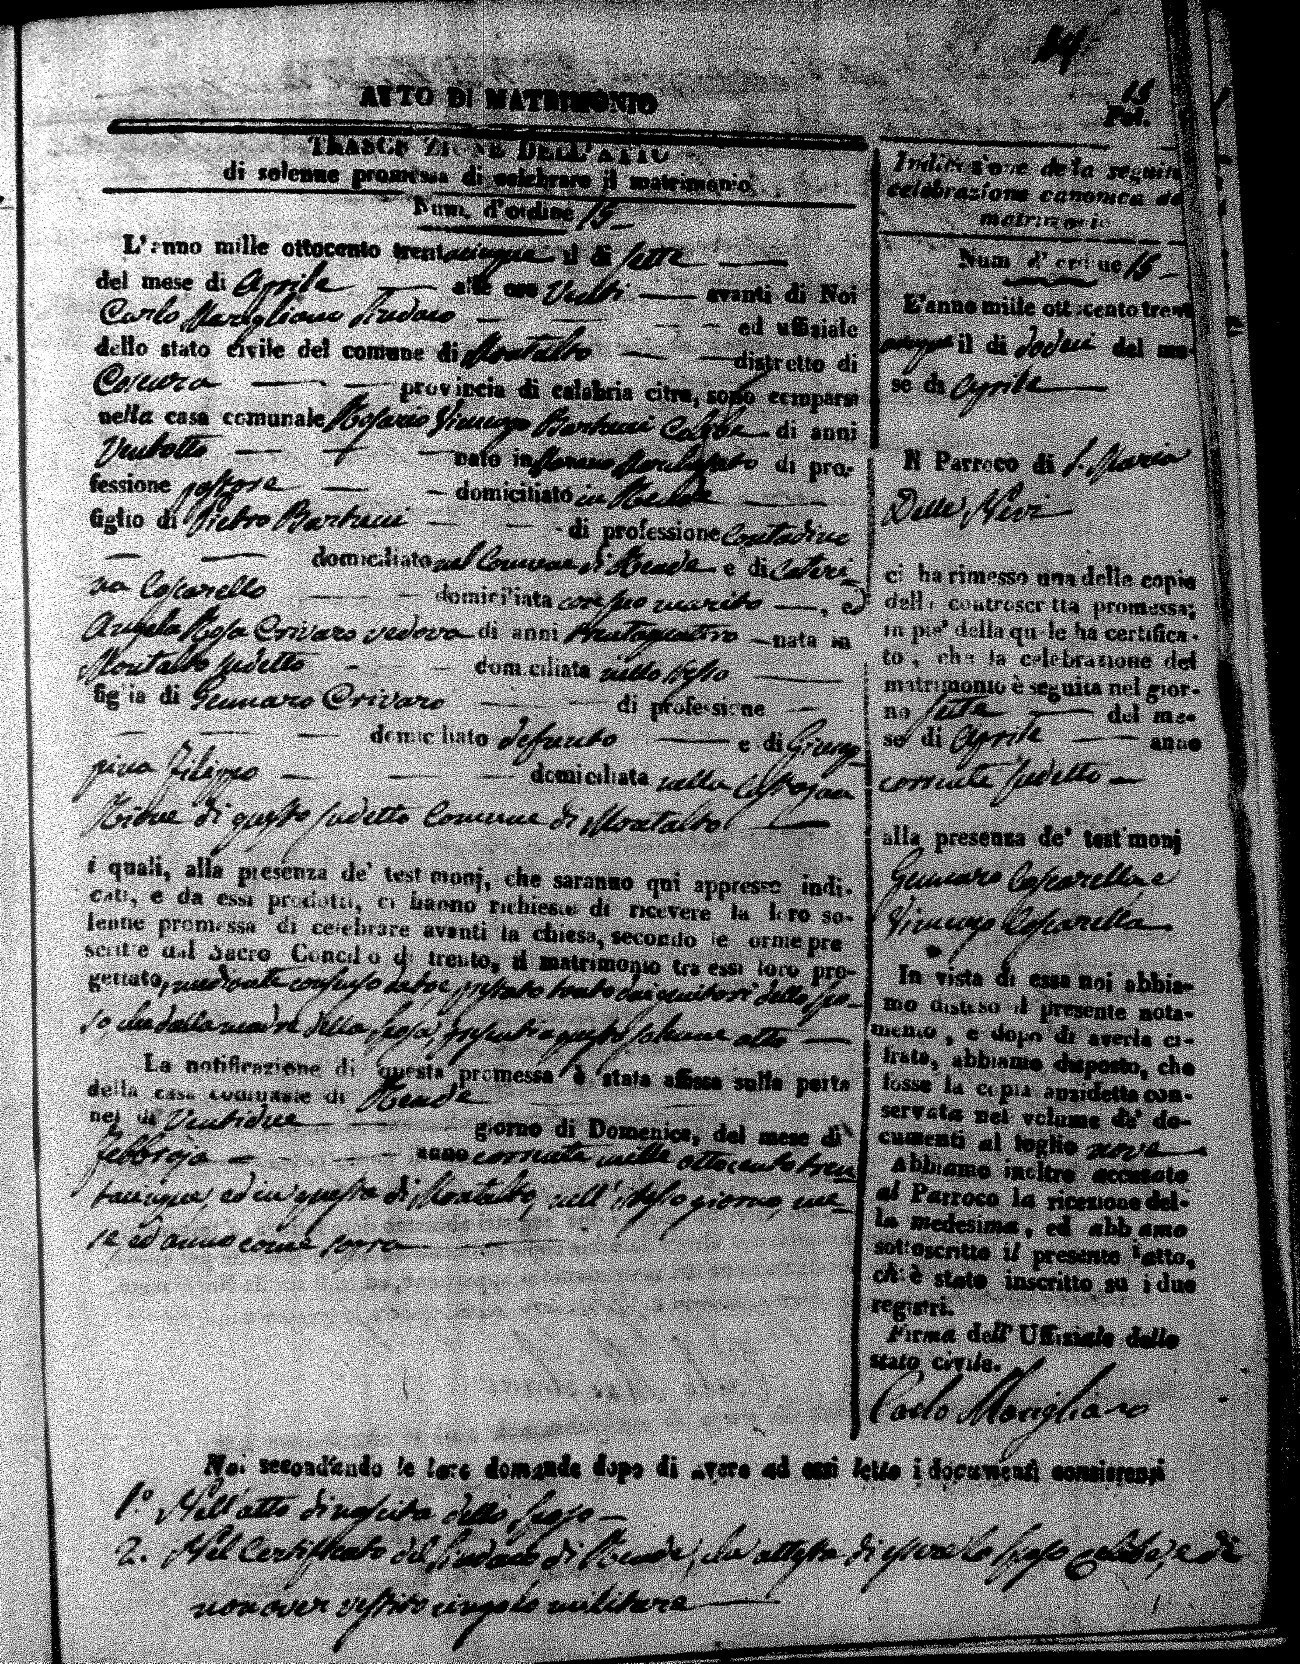 14
15
Pol.
ATTO DI MATRIMONIO
TRASCRIZIONE DELL'ATTO
di solenne promessa di celebrare il matrimonio
Num. d'ordine 15
L'anno mille ottocento trentacinque il dì sette
del mese di Aprile alle ore Venti avanti di Noi
Carlo Marigliano Sindaco ed uffiziale
dello stato civile del comune di Montalto distretto di
Cosenza provincia di calabria citra, sono comparsi
nella casa comunale Rosario Vincenzo celibe di anni
Ventotto nato in di pro-
fessione domiciliato in Rende
figlio di Pietro di professione Contadino
domiciliato nel Comune di Rende e di Cateri-
na Casciarello domiciliata con suo marito , ed
Angela Rosa Crivaro vedova di anni trentaquattro nata in
Montalto sudetto domiciliata nello stesso
figlia di Gennaro Crivaro di professione
domiciliato defunto e di Giusep-
pina Filippo domiciliata nella
di questo sudetto Comune di Montalto
i quali, alla presenza de' testimonj, che saranno qui appresso indi-
cati, e da essi prodotti, ci hanno richiesto di ricevere la loro so-
lenne promessa di celebrare avanti la chiesa, secondo le forme pre
scritte dal Sacro Concilio di trento, il matrimonio tra essi loro pro-
gettato, mediante consenso dato e prestato tanto dai genitori dello spo-
so che dalla madre della sposa, presenti a questo solenne atto
La notificazione di questa promessa è stata affissa sulla porta
della casa comunale di Rende
nel dì Ventidue giorno di Domenica, del mese di
Febbrajo anno corrente mille ottocento tren-
tacinque, ed in questa di Montalto, nell'istesso giorno, me-
se, ed anno come sopra
Indicazione della seguita
celebrazione canonica del
matrimonio
Num. d'ordine 15
L'anno mille ottocento trent
acinque il di dodici del me-
se di Aprile
Il Parroco di S. Maria
Delle Nevi
ci ha rimesso una delle copie
della controscritta promessa;
in piè della quale ha certifica-
to, che la celebrazione del
matrimonio è seguita nel gior-
no sette del me-
se di Aprile anno
corrente sudetto
alla presenza de' testimonj
Gennaro Casciarella e
Vincenzo Casciarella
In vista di essa noi abbia-
mo disteso il presente nota-
mento, e dopo di averla ci-
frata, abbiamo disposto, che
fosse la copia anzidetta con-
servata nel volume de' do-
cumenti al foglio nove
Abbiamo inoltre accusato
al Parroco la ricezione del-
la medesima, ed abbiamo
sottoscritto il presente atto,
ch'è stato inscritto su i due
registri.
Firma dell'Uffiziale dello
stato civile.
Carlo Marigliano
Noi secondando le loro domande dopo di avere ad essi letto i documenti consistenti
1.º Nell'atto di nascita dello sposo
2. Nel Certificato del Sindaco di Rende, che attesta di essere lo sposo celibe, e di
non aver vestito cingolo militare